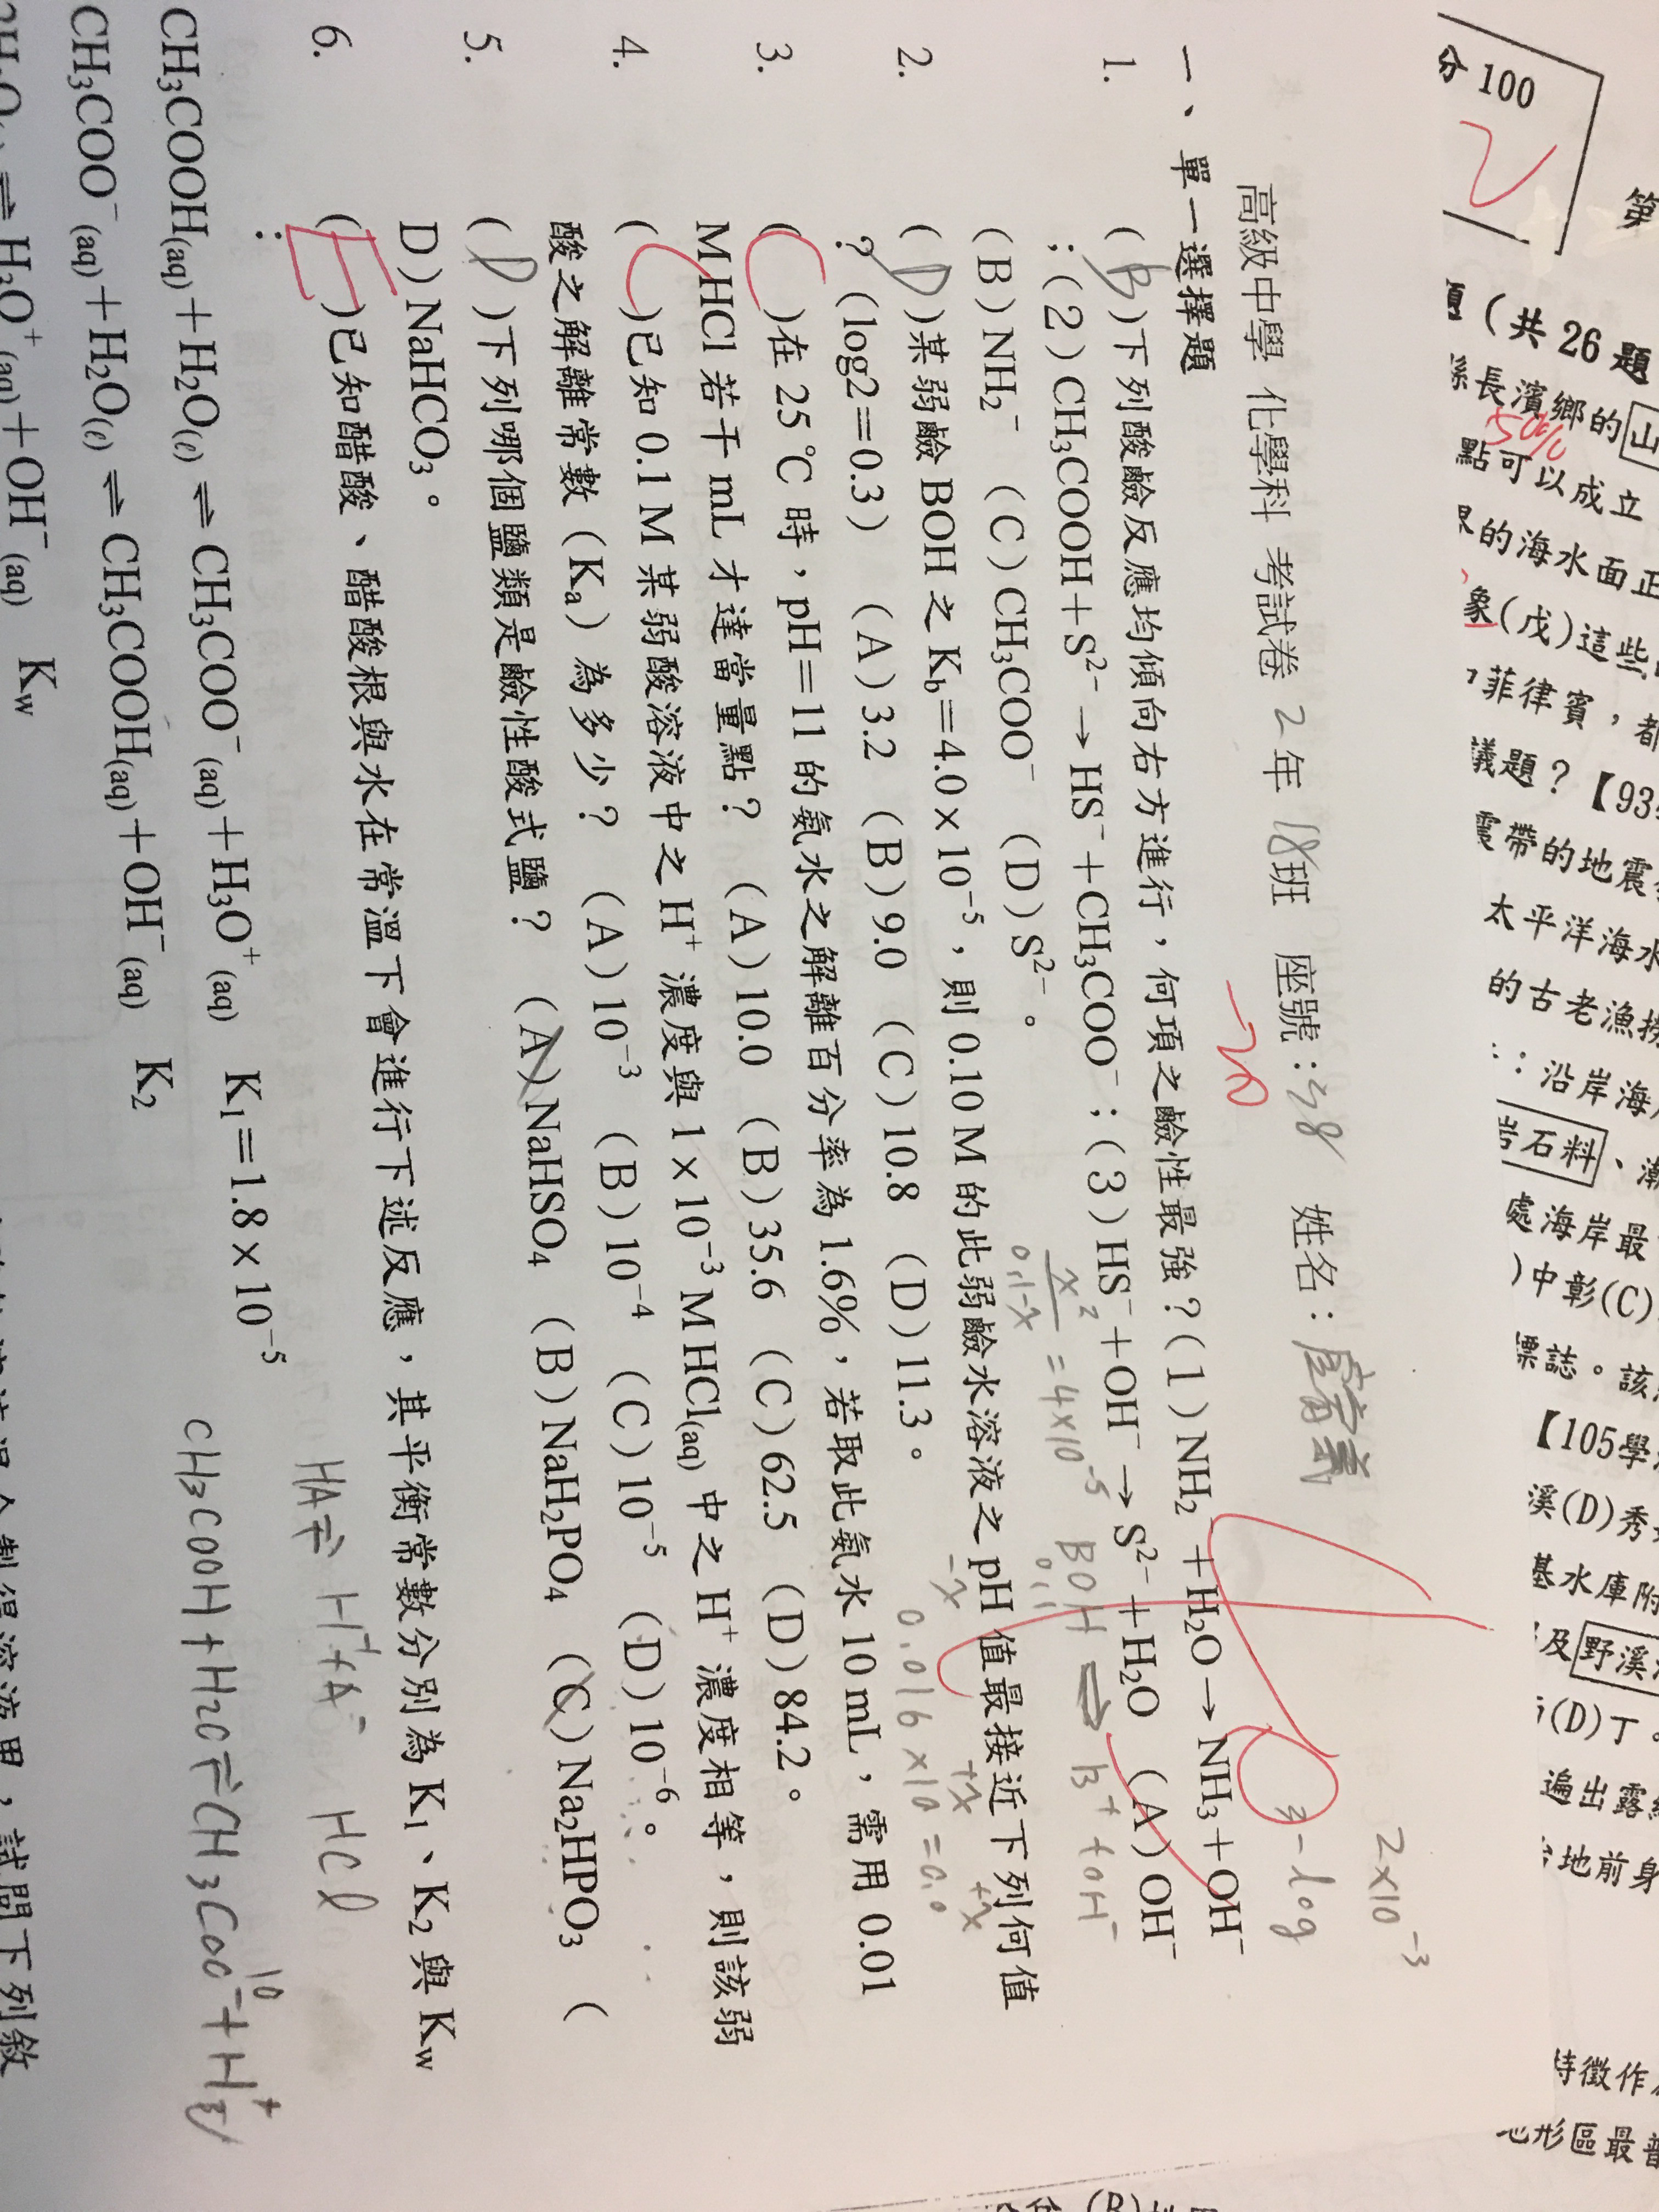 高級中學 化學科 考試卷 2年18班 座號:38 姓名:
-20
一、單一選擇題
1. (B)下列酸鹼反應均傾向右方進行,何項之鹼性最強?(1)NH₂⁻+H₂O→NH₃+OH⁻
;(2)CH₃COOH+S²⁻→HS⁻+CH₃COO⁻;(3)HS⁻+OH⁻→S²⁻+H₂O (A)OH⁻
(B)NH₂⁻ (C)CH₃COO⁻ (D)S²⁻。
2. (D)某弱鹼 BOH 之 K_b=4.0×10⁻⁵,則 0.10 M 的此弱鹼水溶液之 pH 值最接近下列何值
?(log2=0.3) (A)3.2 (B)9.0 (C)10.8 (D)11.3。
3. (C)在 25 ℃ 時,pH=11 的氨水之解離百分率為 1.6%,若取此氨水 10 mL,需用 0.01
M HCl 若干 mL 才達當量點? (A)10.0 (B)35.6 (C)62.5 (D)84.2。
4. (C)已知 0.1 M 某弱酸溶液中之 H⁺ 濃度與 1×10⁻³ M HCl(aq) 中之 H⁺ 濃度相等,則該弱
酸之解離常數(Kₐ)為多少? (A)10⁻³ (B)10⁻⁴ (C)10⁻⁵ (D)10⁻⁶。
5. (D)下列哪個鹽類是鹼性酸式鹽? (A)NaHSO₄ (B)NaH₂PO₄ (C)Na₂HPO₃ (
D)NaHCO₃。
6. (E)已知醋酸、醋酸根與水在常溫下會進行下述反應,其平衡常數分別為 K₁、K₂ 與 K_w
:
CH₃COOH(aq)+H₂O(ℓ)⇌CH₃COO⁻(aq)+H₃O⁺(aq) K₁=1.8×10⁻⁵
CH₃COO⁻(aq)+H₂O(ℓ)⇌CH₃COOH(aq)+OH⁻(aq) K₂
H₃O⁺(aq)+OH⁻(aq) K_w
2×10⁻³
3-log
x²/0.1-x = 4×10⁻⁵
BOH ⇌ B⁺+OH⁻
0.1
-x +x +x
0.016×10=0.0
HA⇌H⁺+A⁻ HCl
CH₃COOH+H₂O⇌CH₃COO⁻+H₃
分 100
(共 26 題
長濱鄉的山
50%
點可以成立
的海水面正
象(戊)這些
菲律賓,都
議題?【93
震帶的地震
太平洋海水
的古老漁撈
:沿岸海
岩石料、潮
處海岸最
)中彰(C)
標誌。該
【105學
溪(D)秀
基水庫附
及野溪
(D)丁。
遍出露
地前身
特徵作
地形區最普